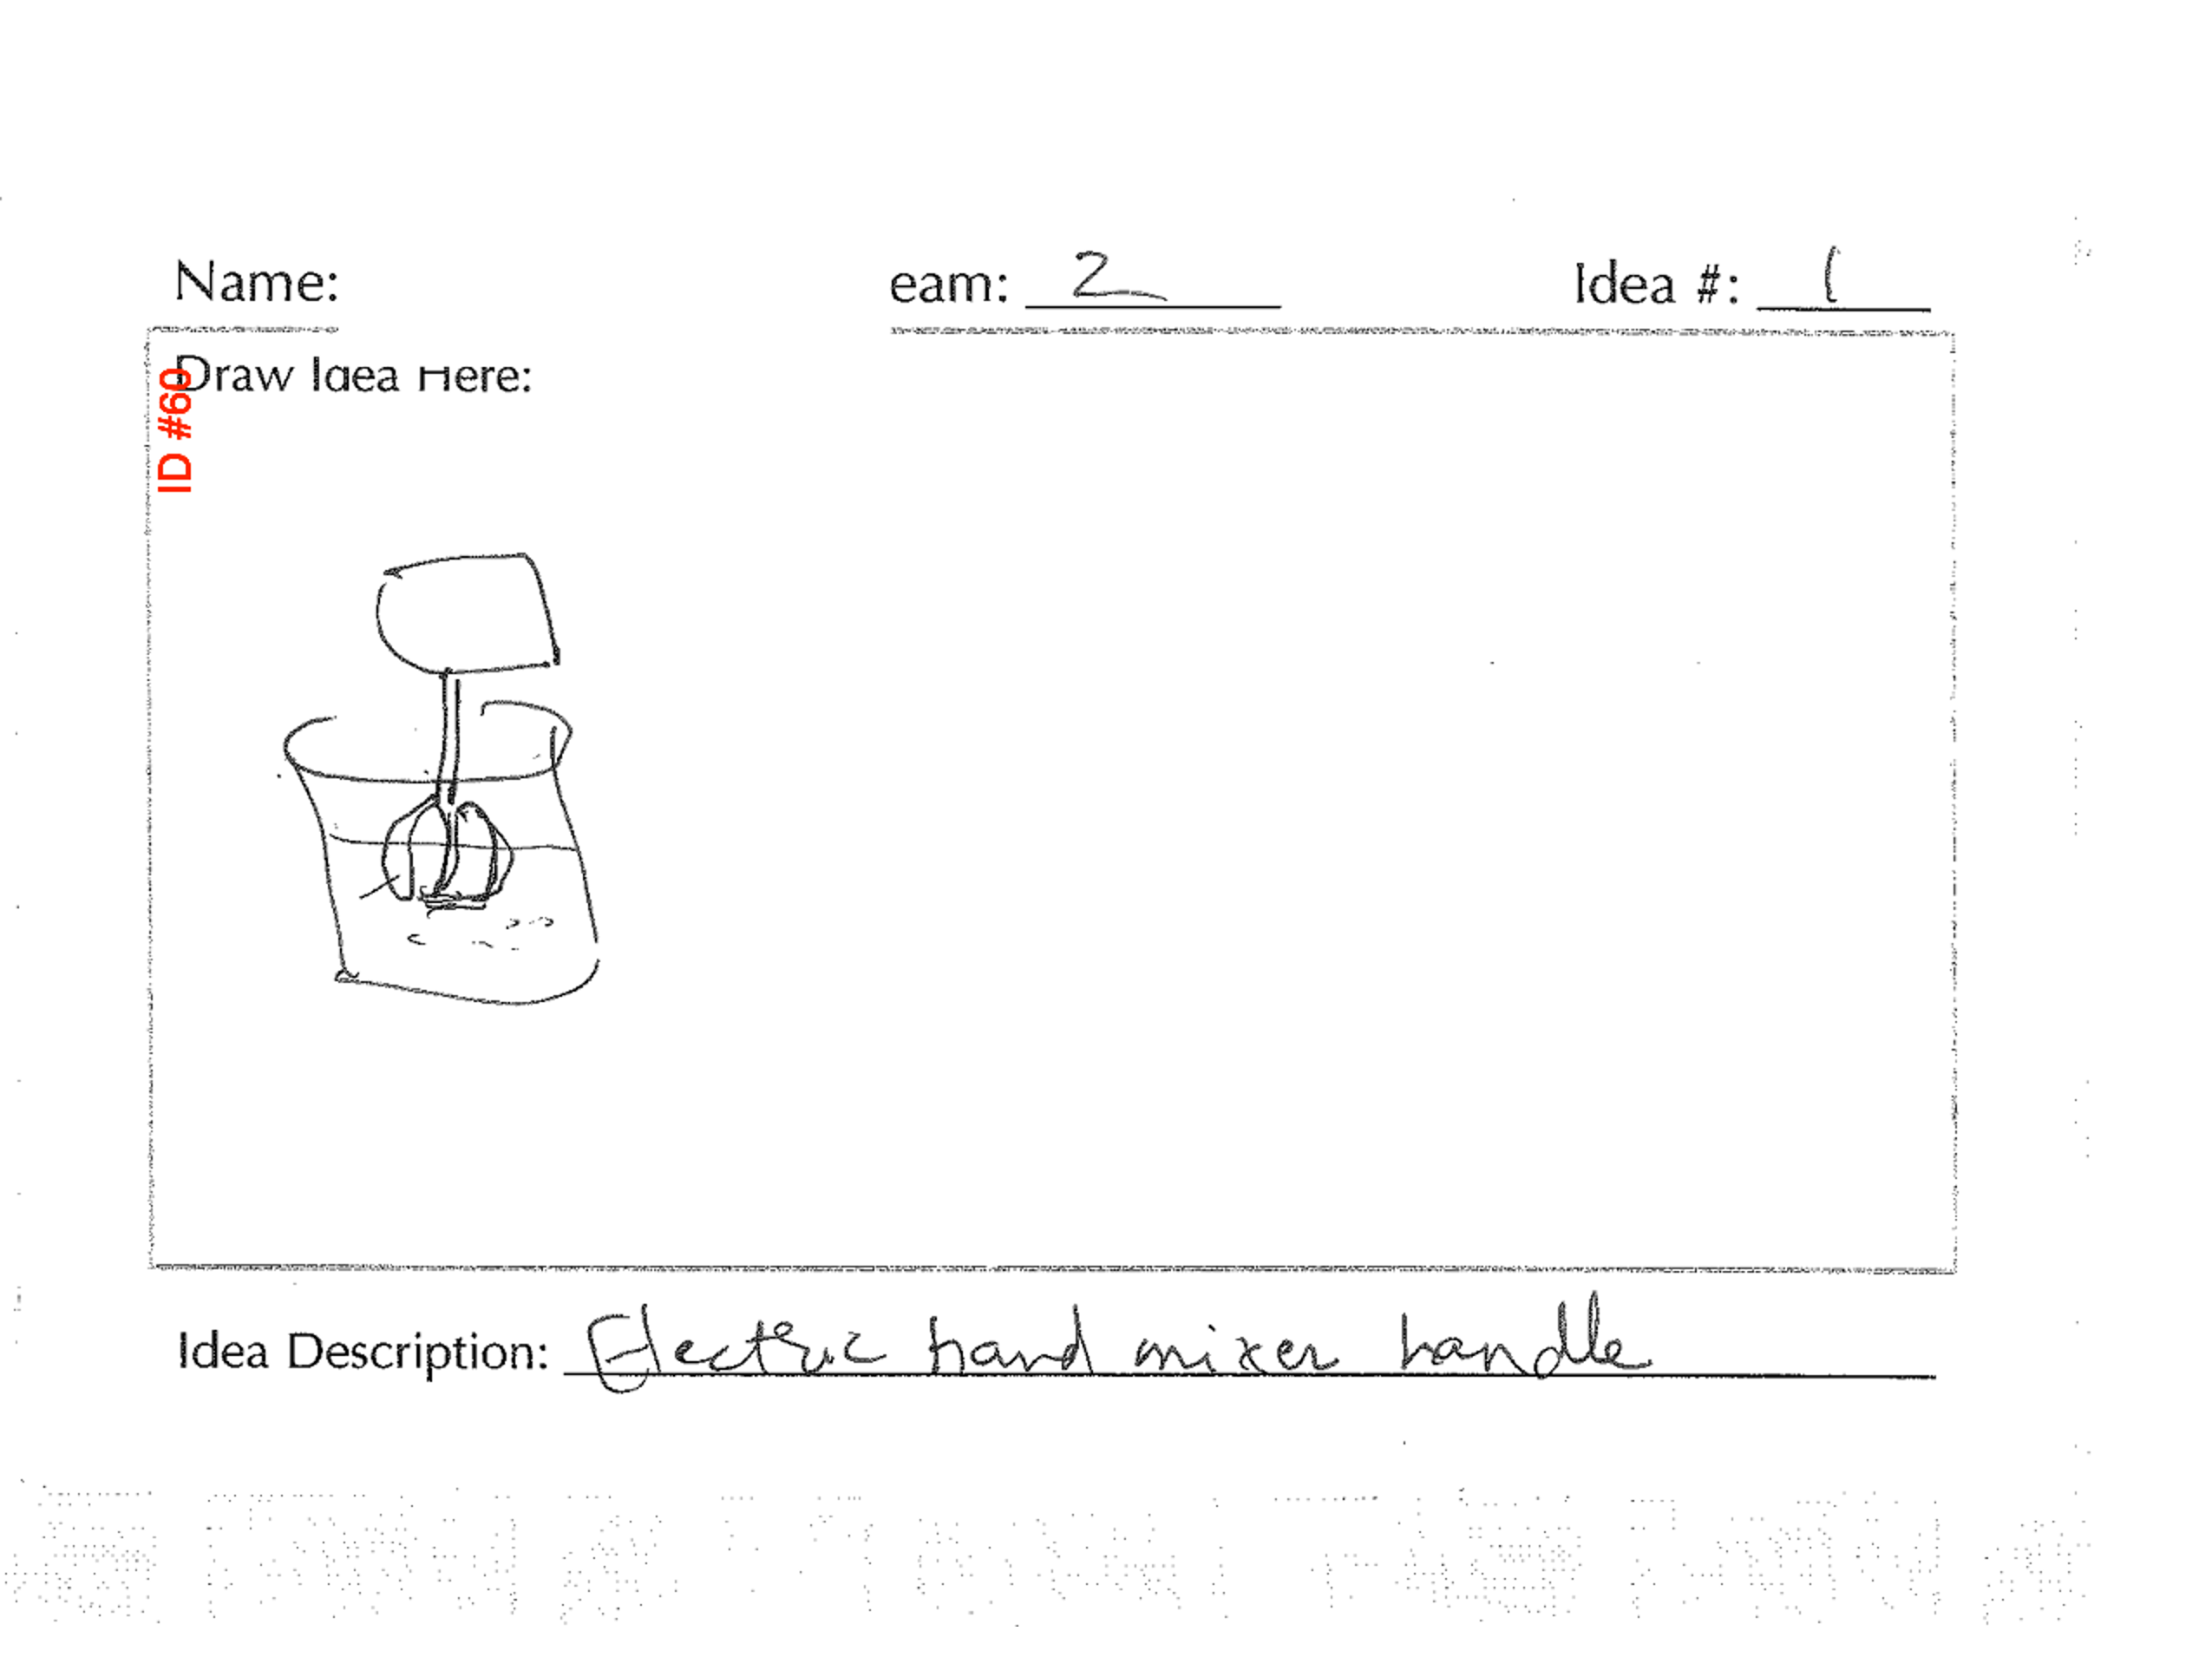 Name: eam: 2 Idea #: 1
Draw Idea Here:
ID #60
Idea Description: Electric hand mixer handle